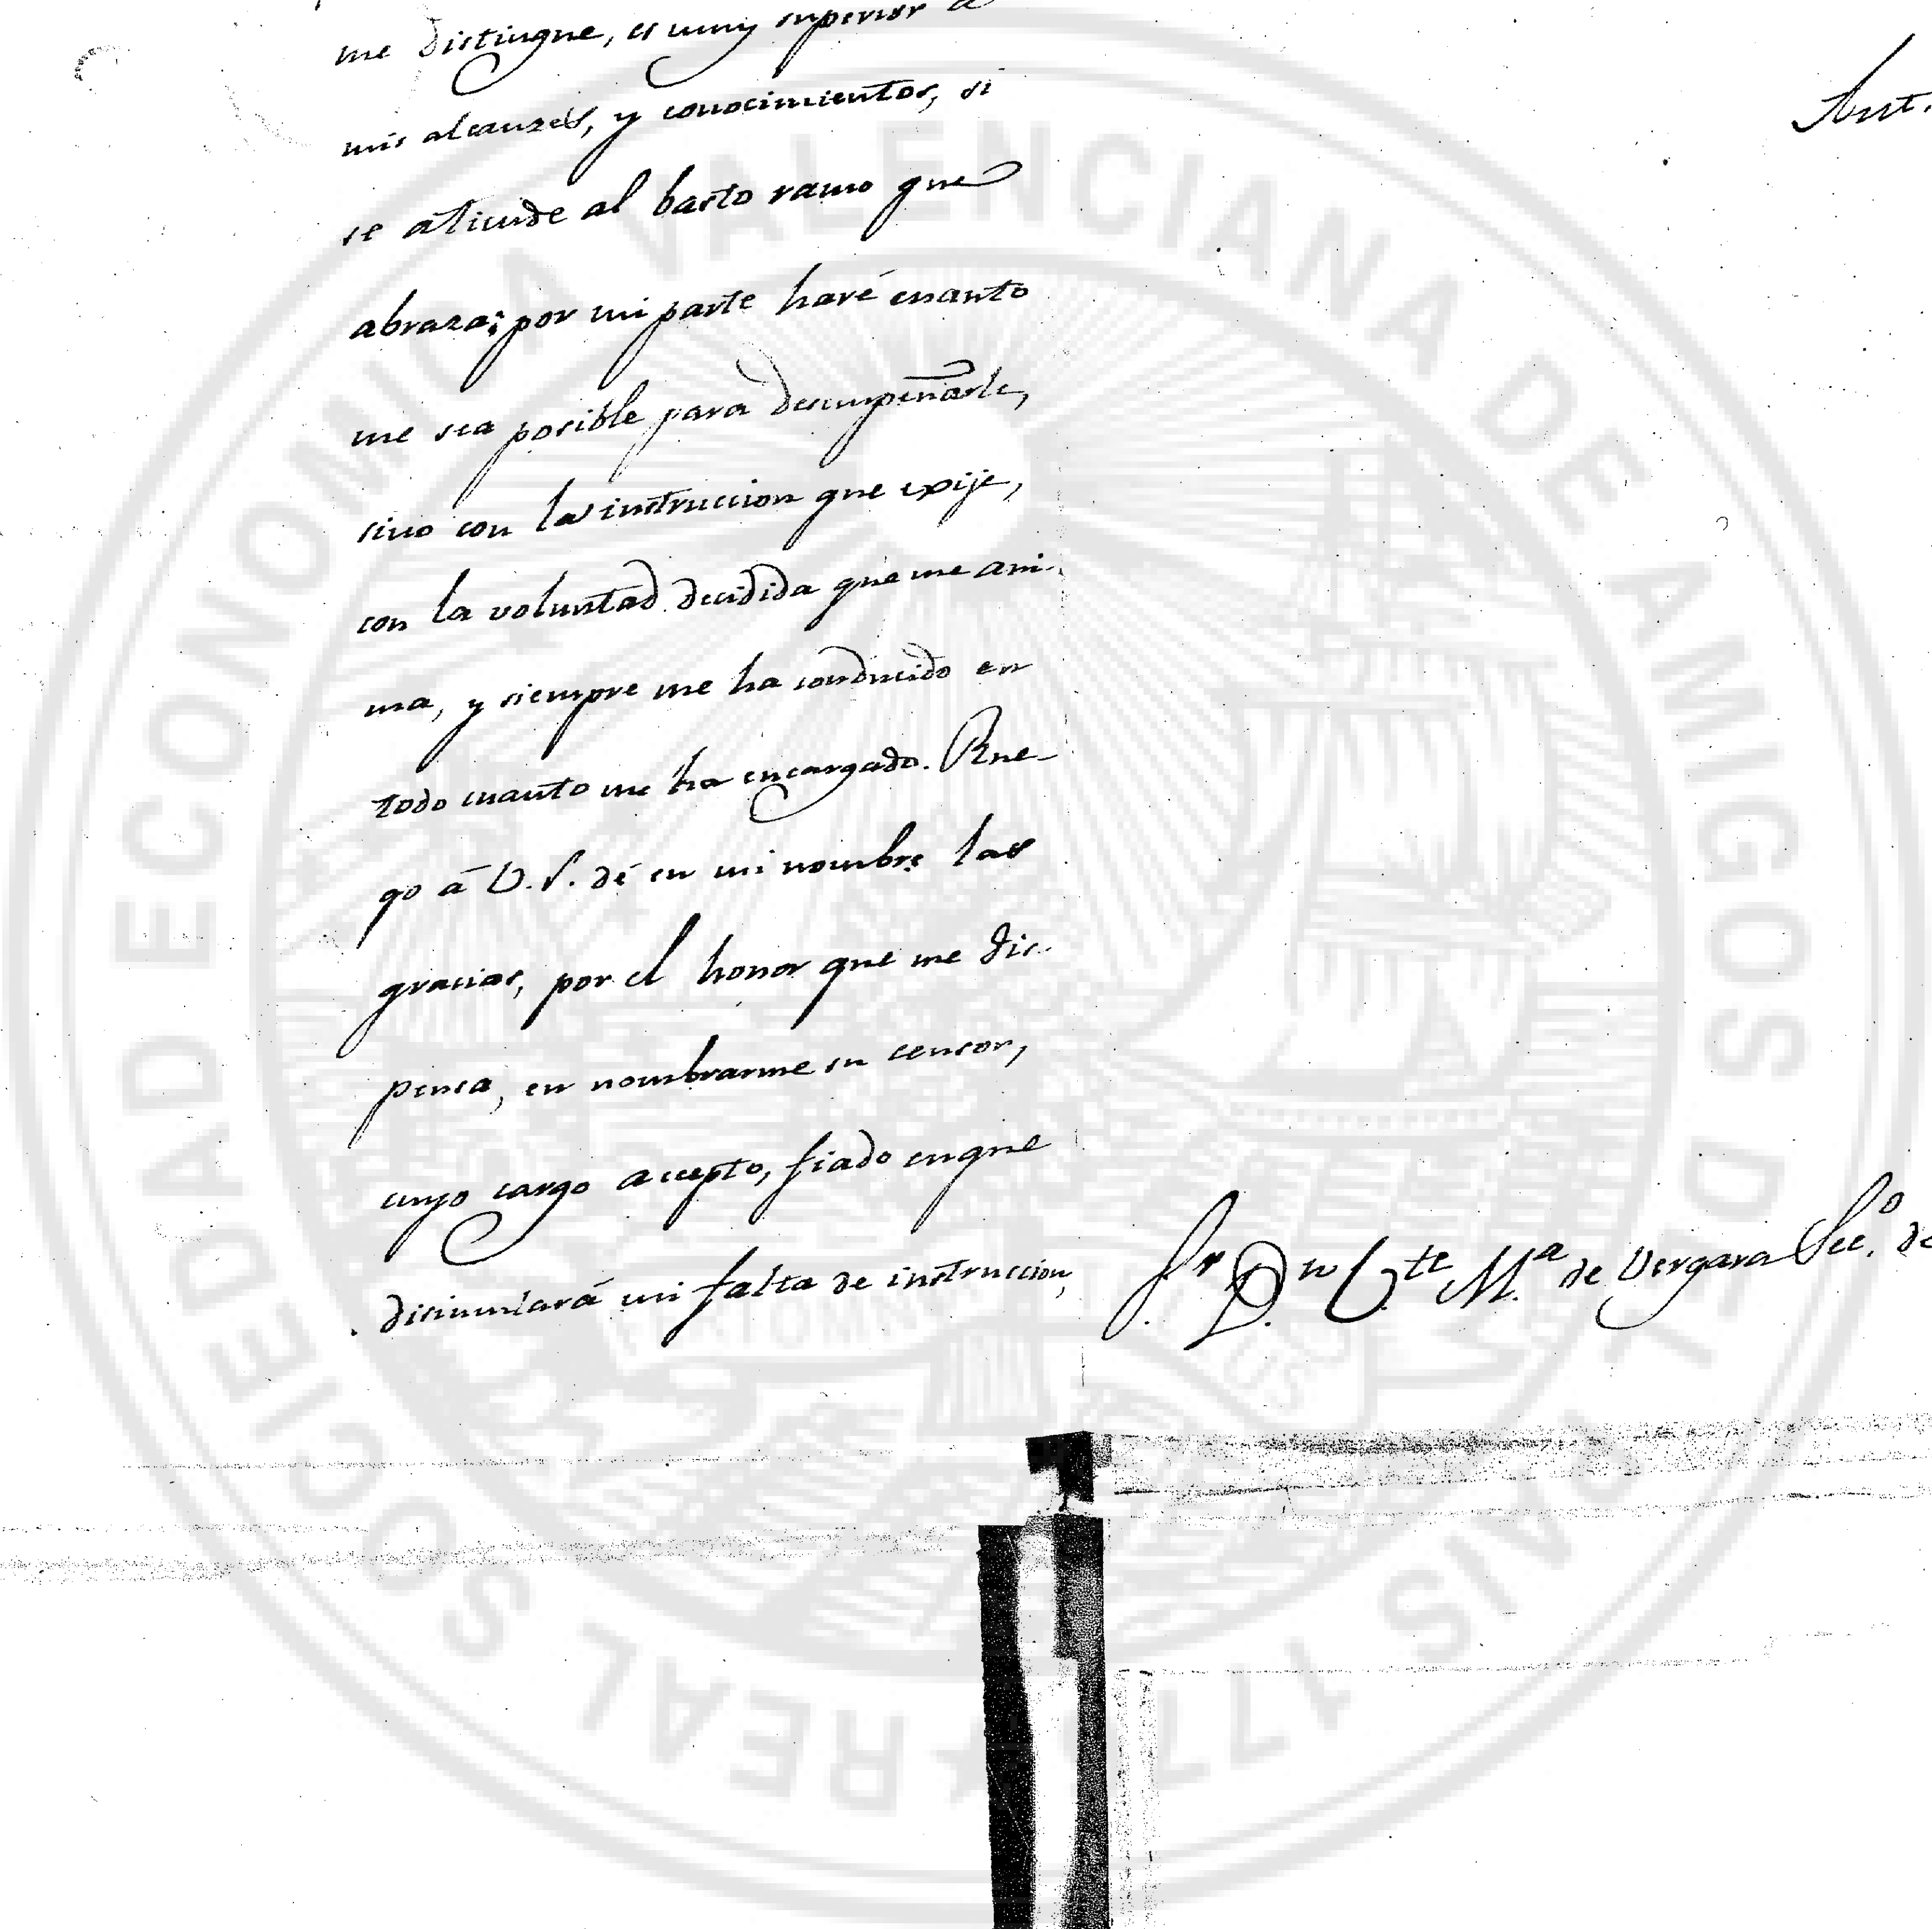 me distingue, es muy superior a
mis alcanzes, y conocimientos, si
se atiende al basto ramo que
abraza; por mi parte haré cuanto
me sea posible para desempeñarle,
sino con la instruccion que exije,
con la voluntad decidida que me ani-
ma, y siempre me ha conducido en
todo cuanto me ha encargado. Rue-
go á V.S. dé en mi nombre las
gracias, por el honor que me dis-
pensa, en nombrarme su censor,
cuyo cargo accepto, fiado en que
disimulará mi falta de instruccion,
Ant.
S.r D.n V.te M.a de Vergara Sec.o de
REAL SOCIEDAD ECONOMICA VALENCIANA DE AMIGOS D